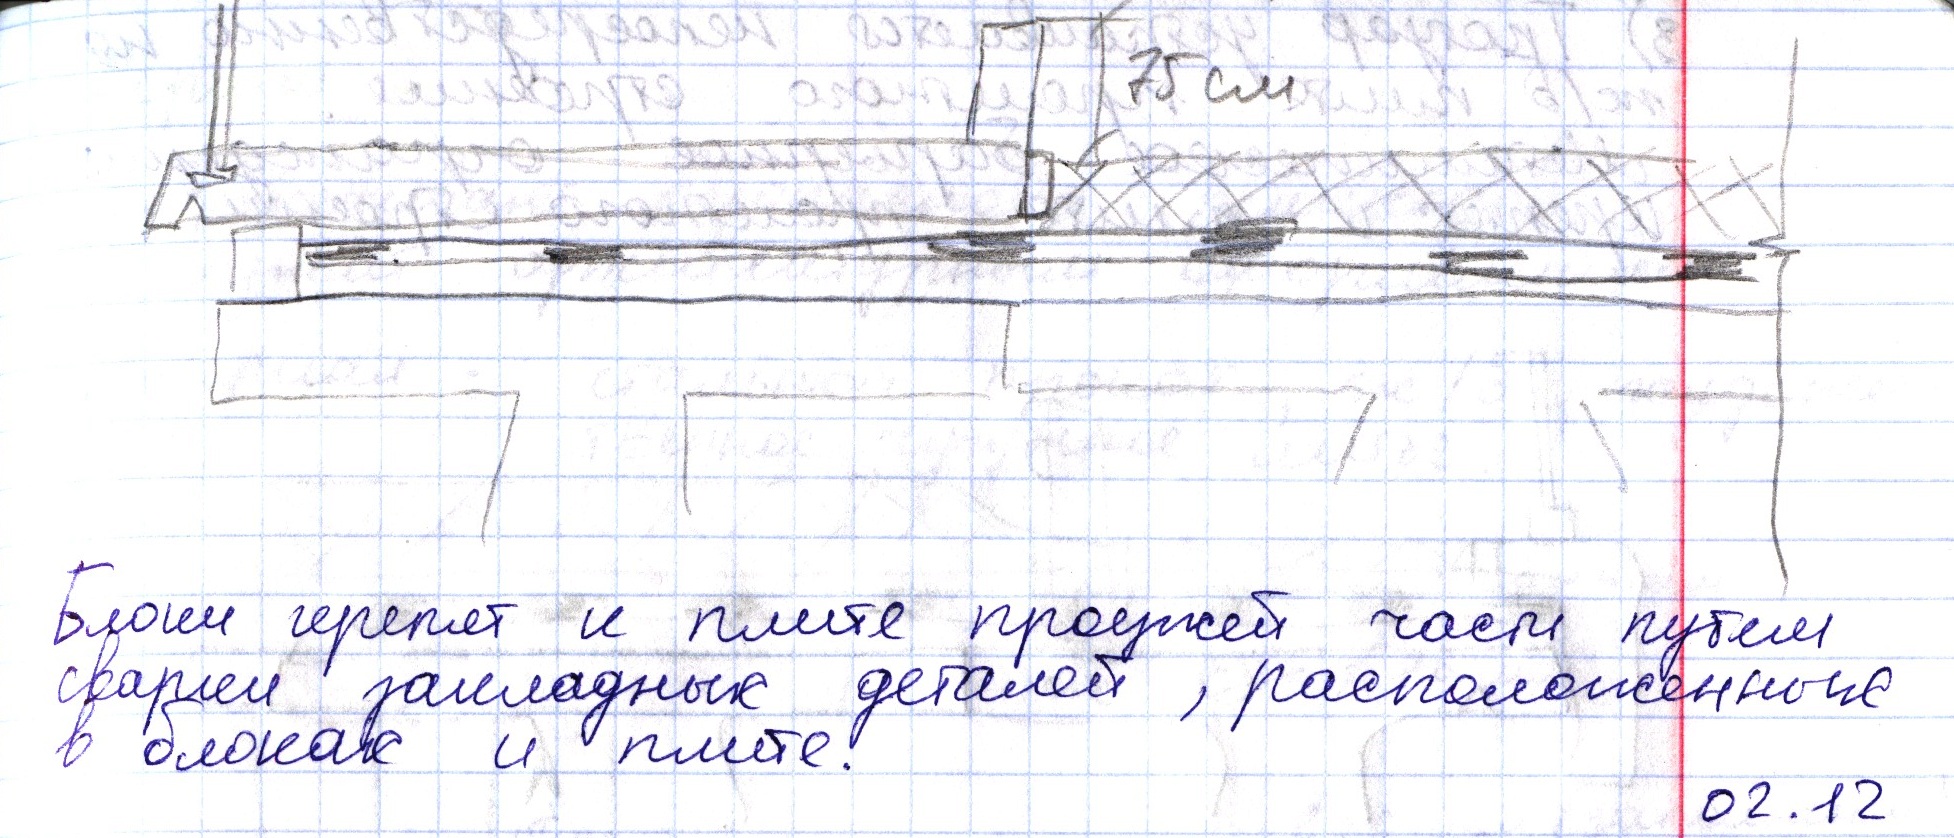 75 см
Блоки крепят к плите проезжей части путем
сварки закладных деталей, расположенных
в блоках и плите.
02.12